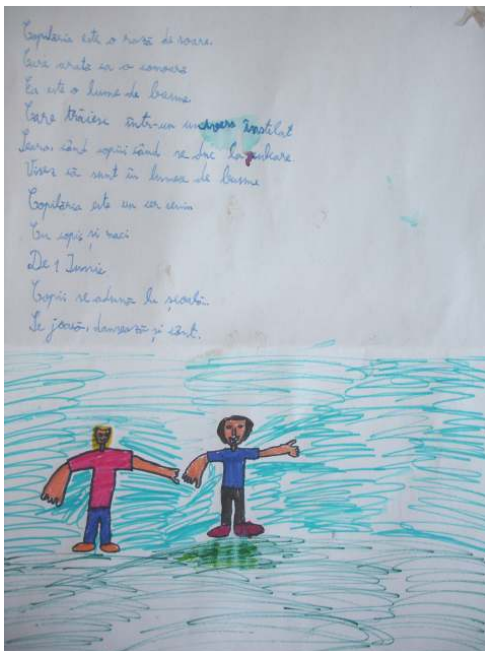 Copilăria este o rază de soare.
Care arată ca o comoară
Ea este o lume de basme
Care trăiesc într-un univers înstelat
Seara, când copii când se duc la culcare
Visez că sunt în lumea de basme
Copilărea este un cer senin
Cu copii și maci
De 1 Iunie
Copii se aduna la școală.
Se joacă, dansează și cânt.